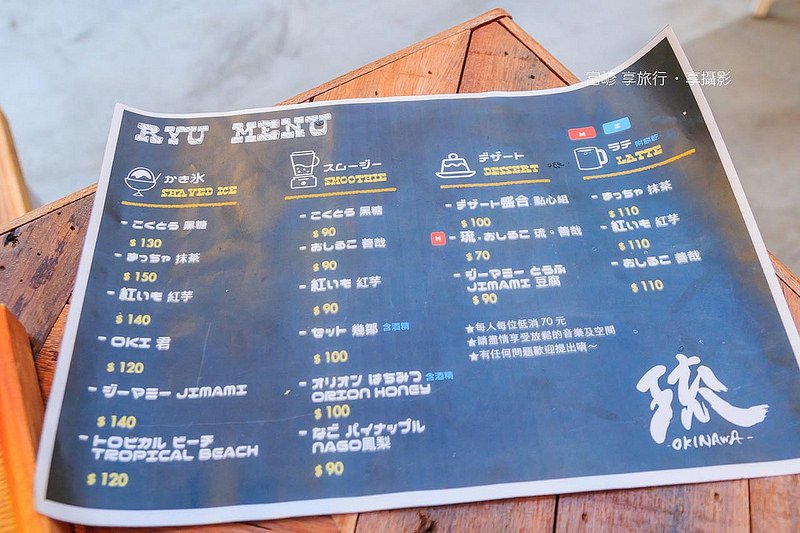 富嵃 享旅行・享攝影
RYU MENU
かき氷
SHAVED ICE
- こくとう 黒糖
$ 130
- まっちゃ 抹茶
$ 150
- 紅いも 紅芋
$ 140
- OKI 君
$ 120
- ジーマミー JIMAMI
$ 140
- トロピカル ビーチ
TROPICAL BEACH
$ 120
スムージー
SMOOTHIE
- こくとう 黒糖
$ 90
- おしるこ 善哉
$ 90
- 紅いも 紅芋
$ 90
- セット 幾鄒 含酒精
$ 100
- オリオン はちみつ 含酒精
ORION HONEY
$ 100
- なご パイナップル
NAGO鳳梨
$ 90
デザート
DESSERT
- デザート盛合 點心組
$ 100
H - 琉・おしるこ 琉・善哉
$ 70
- ジーマミー とうふ
JIMAMI 豆腐
$ 90
H
ラテ 附餅乾
LATTE
- まっちゃ 抹茶
$ 110
- 紅いも 紅芋
$ 110
- おしるこ 善哉
$ 110
★每人每位低消 70 元
★請盡情享受放鬆的音樂及空間
★有任何問題歡迎提出唷~
琉
-OKINAWA-